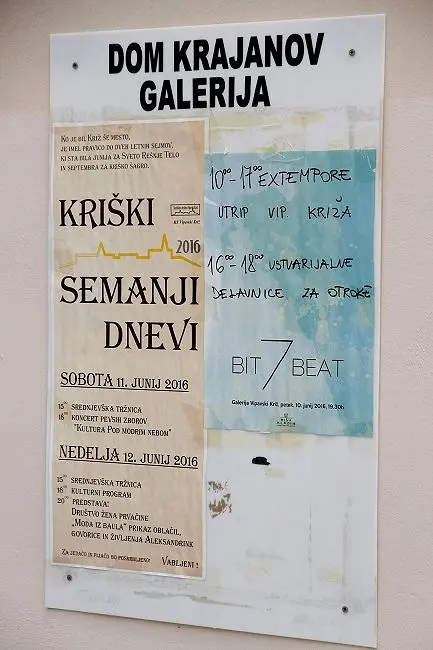 DOM KRAJANOV
GALERIJA
KO JE BIL KRIŽ ŠE MESTO,
JE IMEL PRAVICO DO DVEH LETNIH SEJMOV,
KI STA BILA JUNIJA ZA SVETO REŠNJE TELO
IN SEPTEMBRA ZA KRIŠKO ŠAGRO.
KRIŠKI
KS Vipavski Križ
2016
SEMANJI
DNEVI
SOBOTA 11. JUNIJ 2016
15⁰⁰ SREDNJEVEŠKA TRŽNICA
18⁰⁰ KONCERT PEVSKIH ZBOROV
"KULTURA POD MODRIM NEBOM"
NEDELJA 12. JUNIJ 2016
15⁰⁰ SREDNJEVEŠKA TRŽNICA
18⁰⁰ KULTURNI PROGRAM
20⁰⁰ PREDSTAVA:
DRUŠTVO ŽENA PRVAČINE
„MODA IZ BAULA" PRIKAZ OBLAČIL,
GOVORICE IN ŽIVLJENJA ALEKSANDRINK
ZA JEDAČO IN PIJAČO BO POSKRBLJENO!
VABLJENI !
10⁰⁰-17⁰⁰ EXTEMPORE
UTRIP VIP. KRIŽA
16⁰⁰-18⁰⁰ USTVARJALNE
DELAVNICE ZA OTROKE
BIT 7 BEAT
Galerija Vipavski Križ, petek, 10. junij 2016, 19.30h